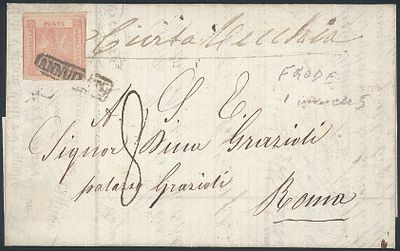 POSTA
NAPOLETANA
ANNULLATO
Civita Vecchia
FRODE
A. S. E.
8
Signor Duca Grazioli
palazzo Grazioli
Roma